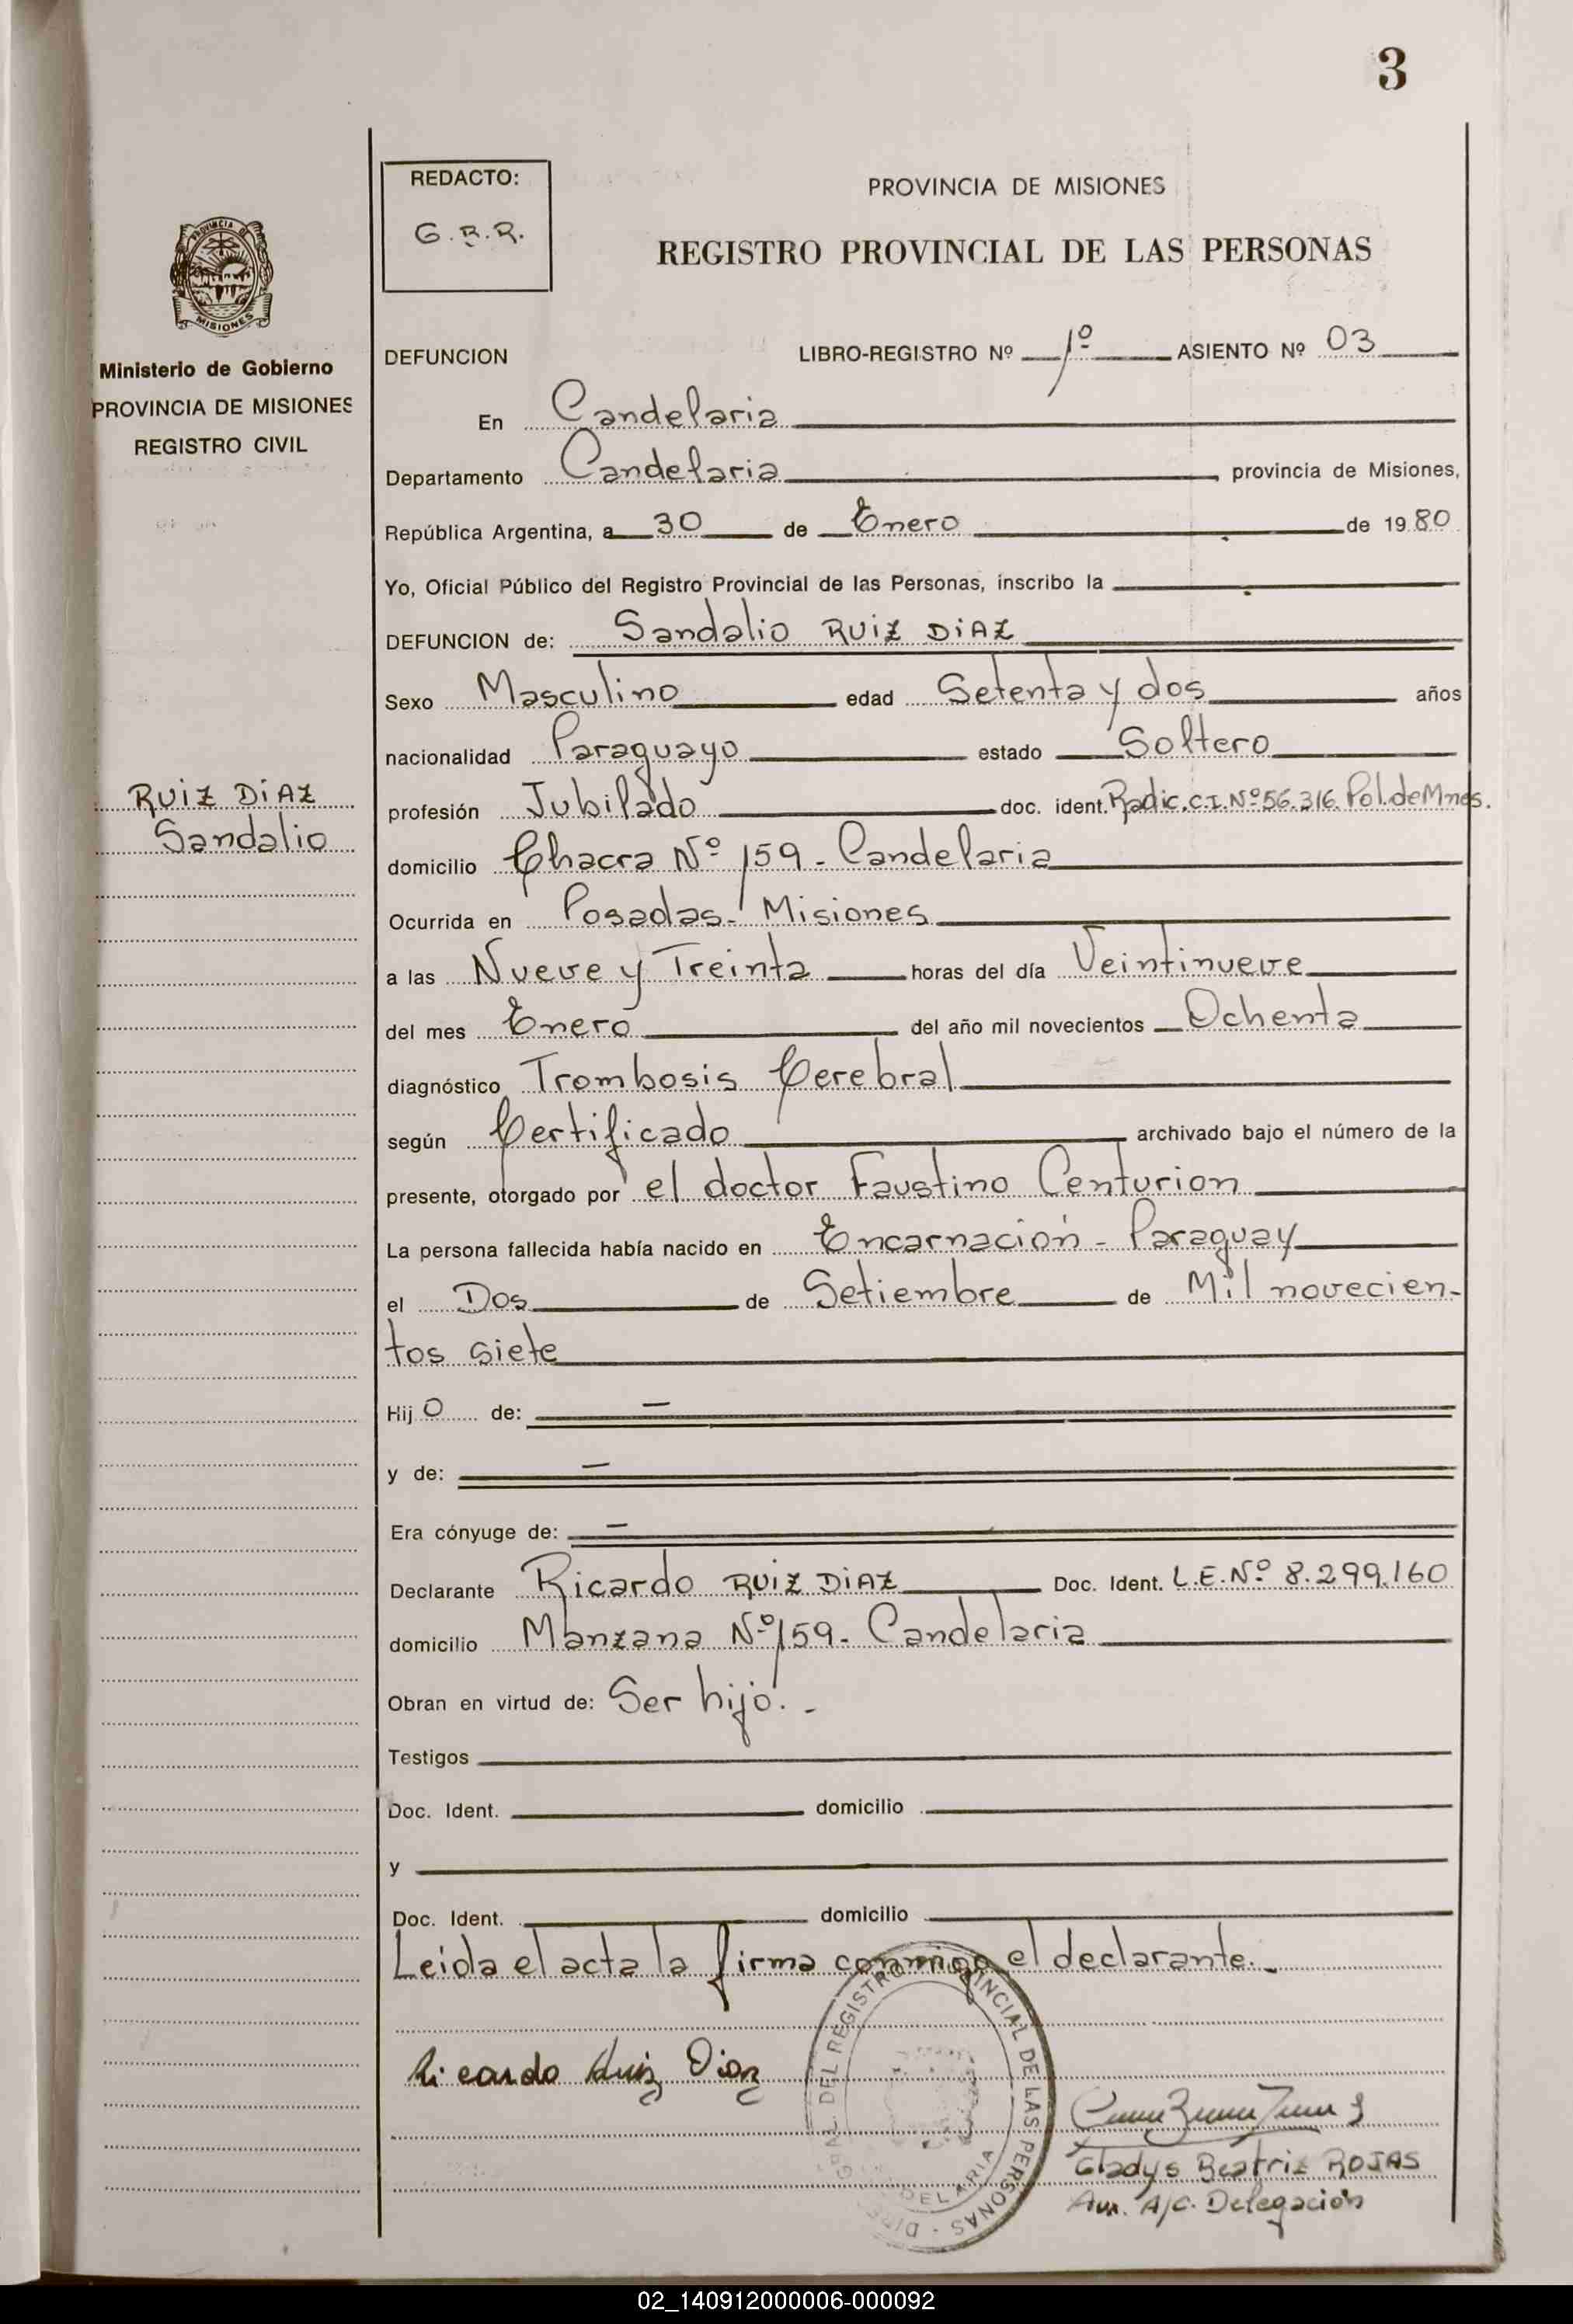 3
REDACTO:
G.B.R.
PROVINCIA DE MISIONES
REGISTRO PROVINCIAL DE LAS PERSONAS
PROVINCIA DE
MISIONES
Ministerio de Gobierno
PROVINCIA DE MISIONES
REGISTRO CIVIL
DEFUNCION LIBRO-REGISTRO Nº 1º ASIENTO Nº 03
En Candelaria
Departamento Candelaria, provincia de Misiones,
República Argentina, a 30 de Enero de 1980
Yo, Oficial Público del Registro Provincial de las Personas, inscribo la
DEFUNCION de: Sandalio RUIZ DIAZ
Sexo Masculino edad Setenta y dos años
nacionalidad Paraguayo estado Soltero
RUIZ DIAZ
Sandalio
profesión Jubilado doc. ident. Radic. C.I. Nº 56.316 Pol. de Mnes.
domicilio Chacra Nº 159 - Candelaria
Ocurrida en Posadas - Misiones
a las Nueve y Treinta horas del día Veintinueve
del mes Enero del año mil novecientos Ochenta
diagnóstico Trombosis Cerebral
según Certificado archivado bajo el número de la
presente, otorgado por el doctor Faustino Centurion
La persona fallecida había nacido en Encarnación - Paraguay
el Dos de Setiembre de Mil novecien-
tos siete
Hijo de: —
y de: —
Era cónyuge de: —
Declarante Ricardo RUIZ DIAZ Doc. Ident. L.E. Nº 8.299.160
domicilio Manzana Nº 159 - Candelaria
Obran en virtud de: Ser hijo.-
Testigos
Doc. Ident. domicilio
y
Doc. Ident. domicilio
Leida el acta la firma conmigo el declarante.-
Ricardo Ruiz Diaz
DEL REGISTRO PROVINCIAL DE LAS PERSONAS
Gladys Beatriz ROJAS
Aux. A/C. Delegación
02_140912000006-000092